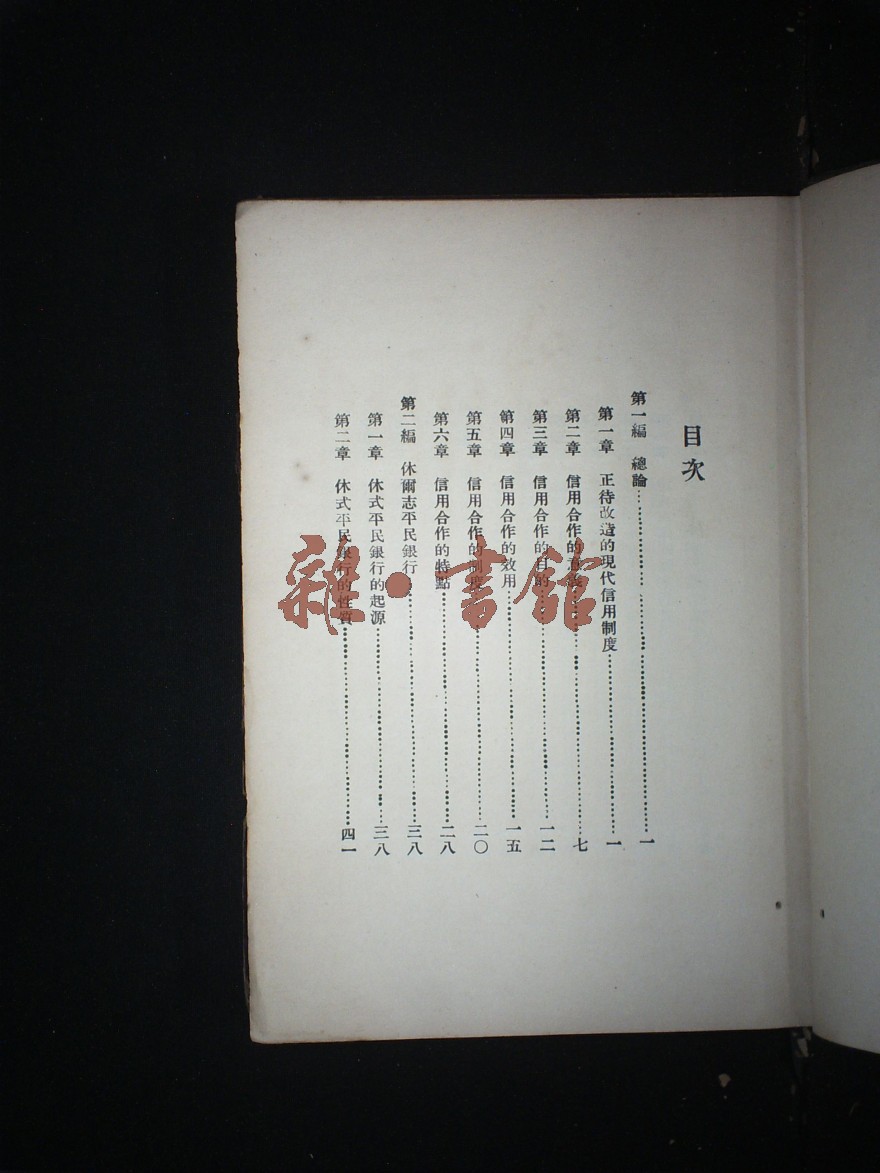 目次
第一編 總論 一
第一章 正待改造的現代信用制度 一
第二章 信用合作的 七
第三章 信用合作的目的 一二
第四章 信用合作的效用 一五
第五章 信用合作的制度 二〇
第六章 信用合作的特點 二八
第二編 休爾志平民銀行 三八
第一章 休式平民銀行的起源 三八
第二章 休式平民銀行的性質 四一
雜·書館